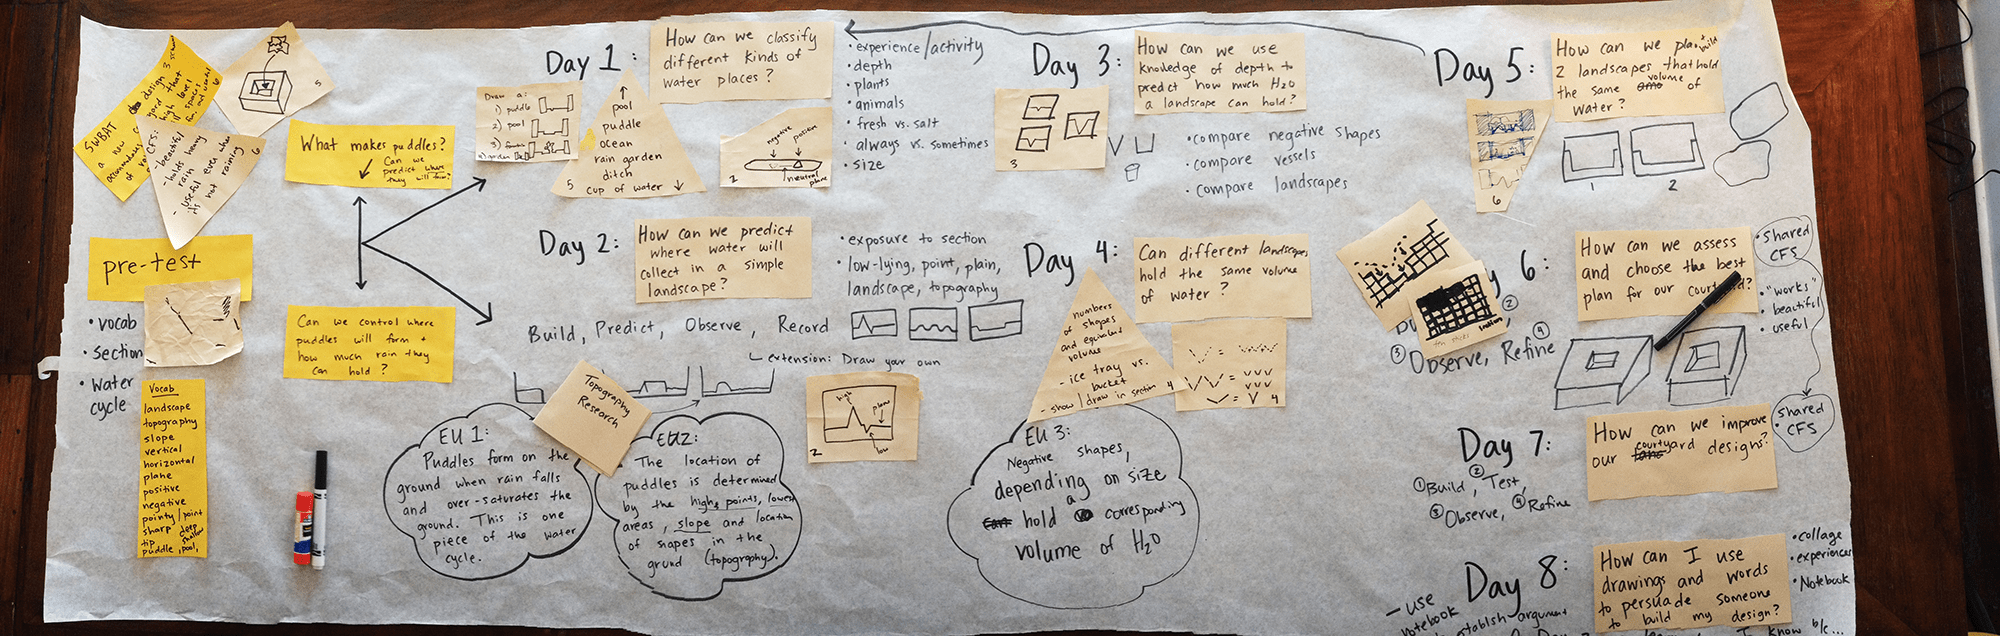 SWBAT
design 3
a new
yard that
high level
spaces
fun, and useful
6
CFS:
- beautiful
- holds heavy
rain
- useful even when
its not raining
6
5
What makes puddles?
Can we
predict where
they will form?
pre-test
• vocab
• section
• water
cycle
Vocab
landscape
topography
slope
vertical
horizontal
plane
positive
negative
pointy/point
sharp deep
tip shallow
puddle, pool,
Can we control where
puddles will form +
how much rain they
can hold?
Day 1:
How can we classify
different kinds of
water places?
Draw a:
1) puddle
2) pool
3)
4) garden
pool
puddle
ocean
rain garden
ditch
5 cup of water
negative positive
neutral plane
2
• experience/activity
• depth
• plants
• animals
• fresh vs. salt
• always vs. sometimes
• size
Day 2:
How can we predict
where water will
collect in a simple
landscape?
• exposure to section
• low-lying, point, plain,
landscape, topography
Build, Predict, Observe, Record
extension: Draw your own
Topography
Research
high
plane
low
2
EU 1:
Puddles form on the
ground when rain falls
and over-saturates the
ground. This is one
piece of the water
cycle.
EU2:
The location of
puddles is determined
by the high points, lowest
areas, slope and location
of shapes in the
grund (topography).
Day 3:
How can we use
knowledge of depth to
predict how much H2O
a landscape can hold?
3
• compare negative shapes
• compare vessels
• compare landscapes
Day 4:
Can different landscapes
hold the same volume
of water?
numbers
of shapes
and equivalent
volume
- ice tray vs.
bucket
- show/draw in section 4
4
EU 3:
Negative shapes,
depending on size
hold a corresponding
volume of H2O
Day 5:
How can we plan + build
2 landscapes that hold
the same volume of
water?
6
1 2
6:
How can we assess
and choose the best
plan for our courtyard?
②
③ Observe, ④ Refine
• Shared
CFS
• "works"
• beautiful
• useful
shared
CFS
Day 7:
How can we improve
our courtyard designs?
① Build, ② Test,
③ Observe, ④ Refine
Day 8:
How can I use
drawings and words
to persuade someone
to build my design?
• collage
• experiences
• Notebook
- use
notebook
establish argument
I know b/c...